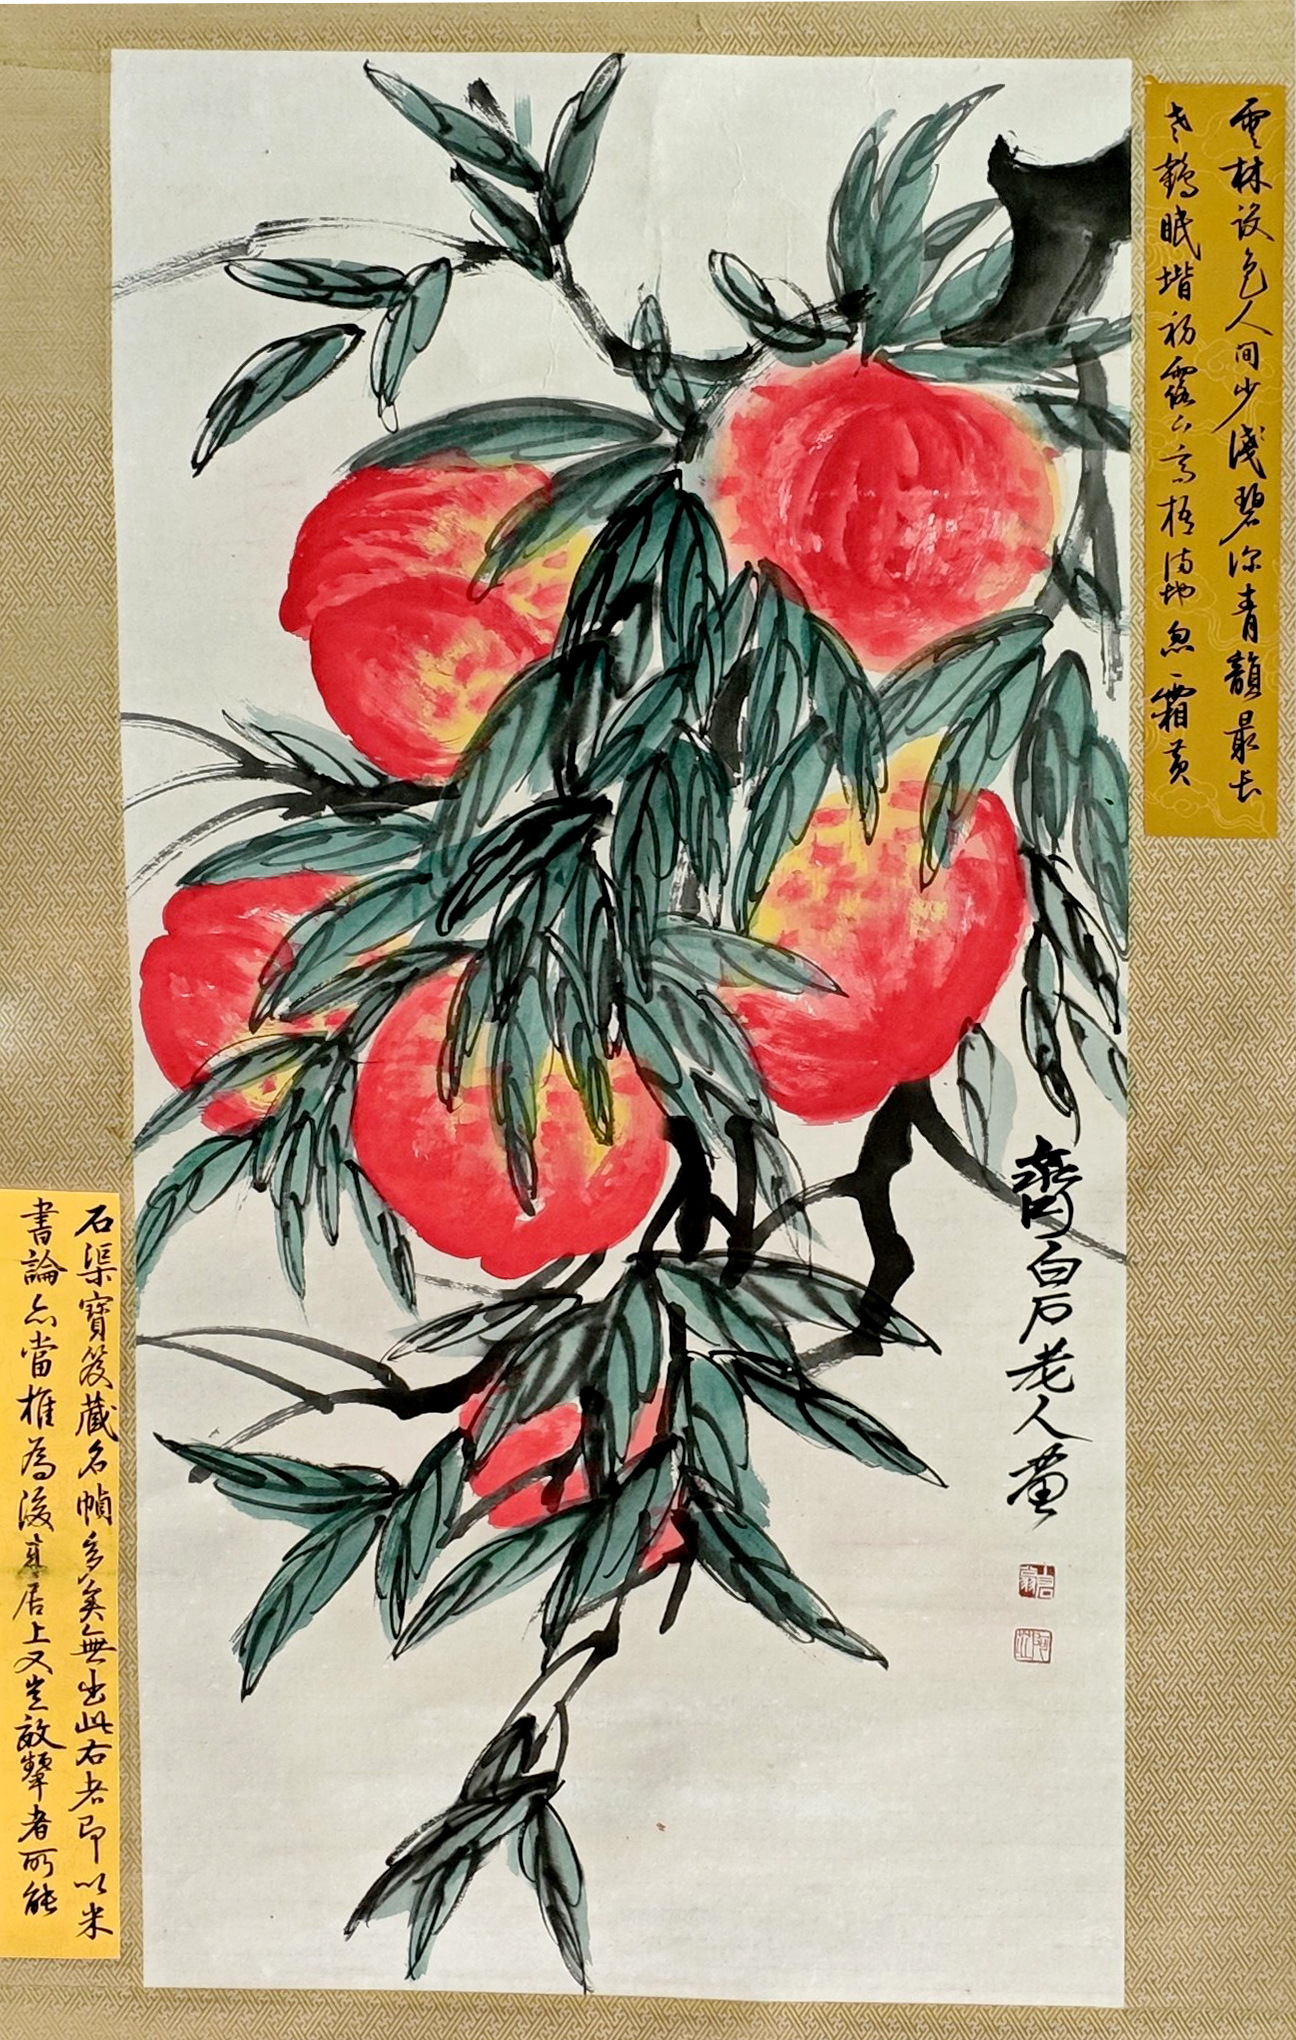 雲林設色人間少淺碧深青韻最長
老鶴眠堦初露下高梧滿地忽霜黃
齊白石老人畫
石渠寶笈藏名幀多矣無出此右者即以米
書論亦當推為後來居上又豈效顰者所能